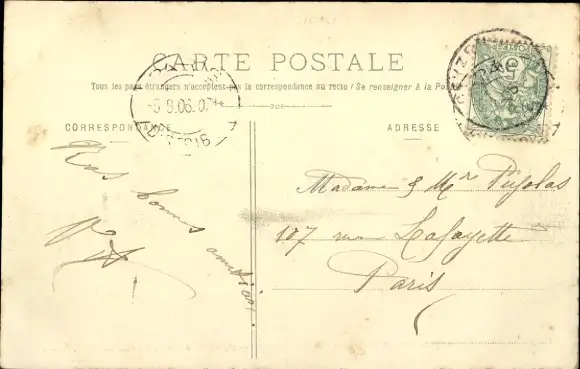 CARTE POSTALE
Tous les pays étrangers n'acceptent pas la correspondance au recto (Se renseigner à la Poste)
CORRESPONDANCE
ADRESSE
5
Nos bonnes amitiés.
Madame & Mr Pujolas
107 rue Lafayette
Paris